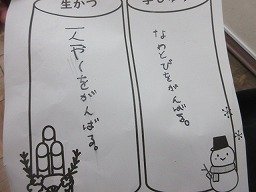 なわとびをがんばる。
生かつ
一人やくをがんばる。